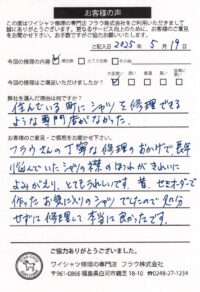 お客様の声
この度はワイシャツ修理の専門店 フラウ株式会社をご利用いただきまして
誠にありがとうございます。
ご記入日 2025年5月19日
今回の修理の内容
今回の修理はご満足いただけましたか?
大変良い 良い 普通
弊社を選んだ理由は何ですか?
住んでいる町にシャツを修理できる
ような専門店がなかった。
お客様のご意見・ご感想をお聞かせ下さい。
フラウさんの丁寧な修理のおかげで長年
悩んでいたシャツの襟のほつれがきれいに
よみがえり、とてもうれしいです。昔、セミオーダーで
作ったお気に入りのシャツでしたので処分
せずに修理して本当に良かったです。
ご協力ありがとうございました。
ワイシャツ修理の専門店 フラウ株式会社
〒961-0866 福島県白河市鶴芝18-10 0248-27-1234